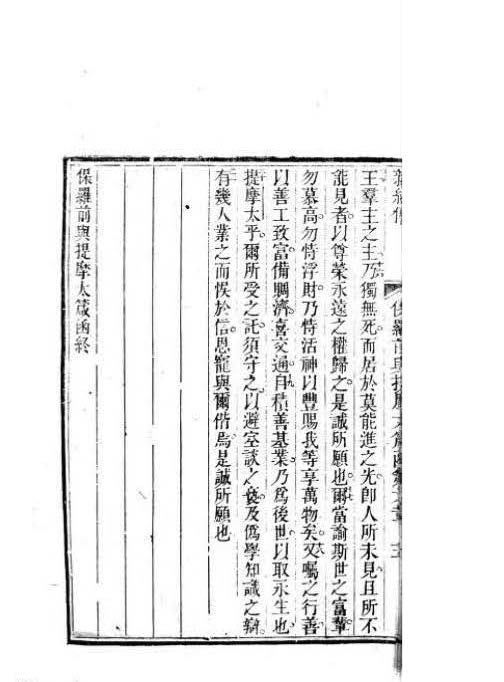 保羅前與提摩太箴函第六章
王羣主之主乃獨無死而居於莫能進之光卽人所未見且所不
能見者以尊榮永遠之權歸之是誠所願也爾當諭斯世之富輩
勿慕高勿恃浮財乃恃活神以豐賜我等享萬物矣又囑之行善
以善工致富備賙濟喜交通自積善基業乃爲後世以取永生也
提摩太乎爾所受之託須守之以避空談之褻及僞學知識之辯
有幾人業之而悞於信恩寵與爾偕焉是誠所願也
保羅前與提摩太箴函終